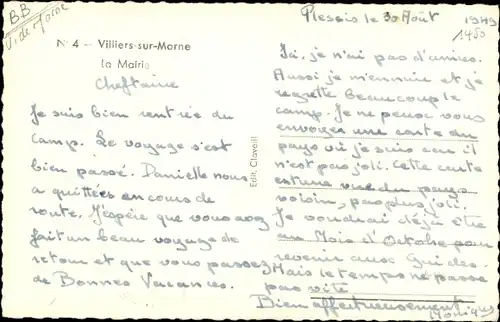 BB
V. de Marne
Plessis le 30 Août 1949
1450
N° 4 - Villiers-sur-Marne
La Mairie
Cheftaine
Je suis bien rentrée du
camp. Le voyage s'est
bien passé. Danielle nous
a quittées en cours de
route. J'espère que vous avez
fait un beau voyage de
retour et que vous passez
de Bonnes Vacances.
Edit. Claveill
Ici, je n'ai pas d'amies.
Aussi je m'ennuie et je
regrette beaucoup le
camp. Je ne peux vous
envoyer une carte du
pays où je suis car il
n'est pas joli. Cette carte
est une vue du pays
voisin, pas plus joli.
Je voudrai déjà être
au Mois d'Octobre pour
revenir aux Guides.
Mais le temps ne passe
pas vite
Bien affectueusement
Monique